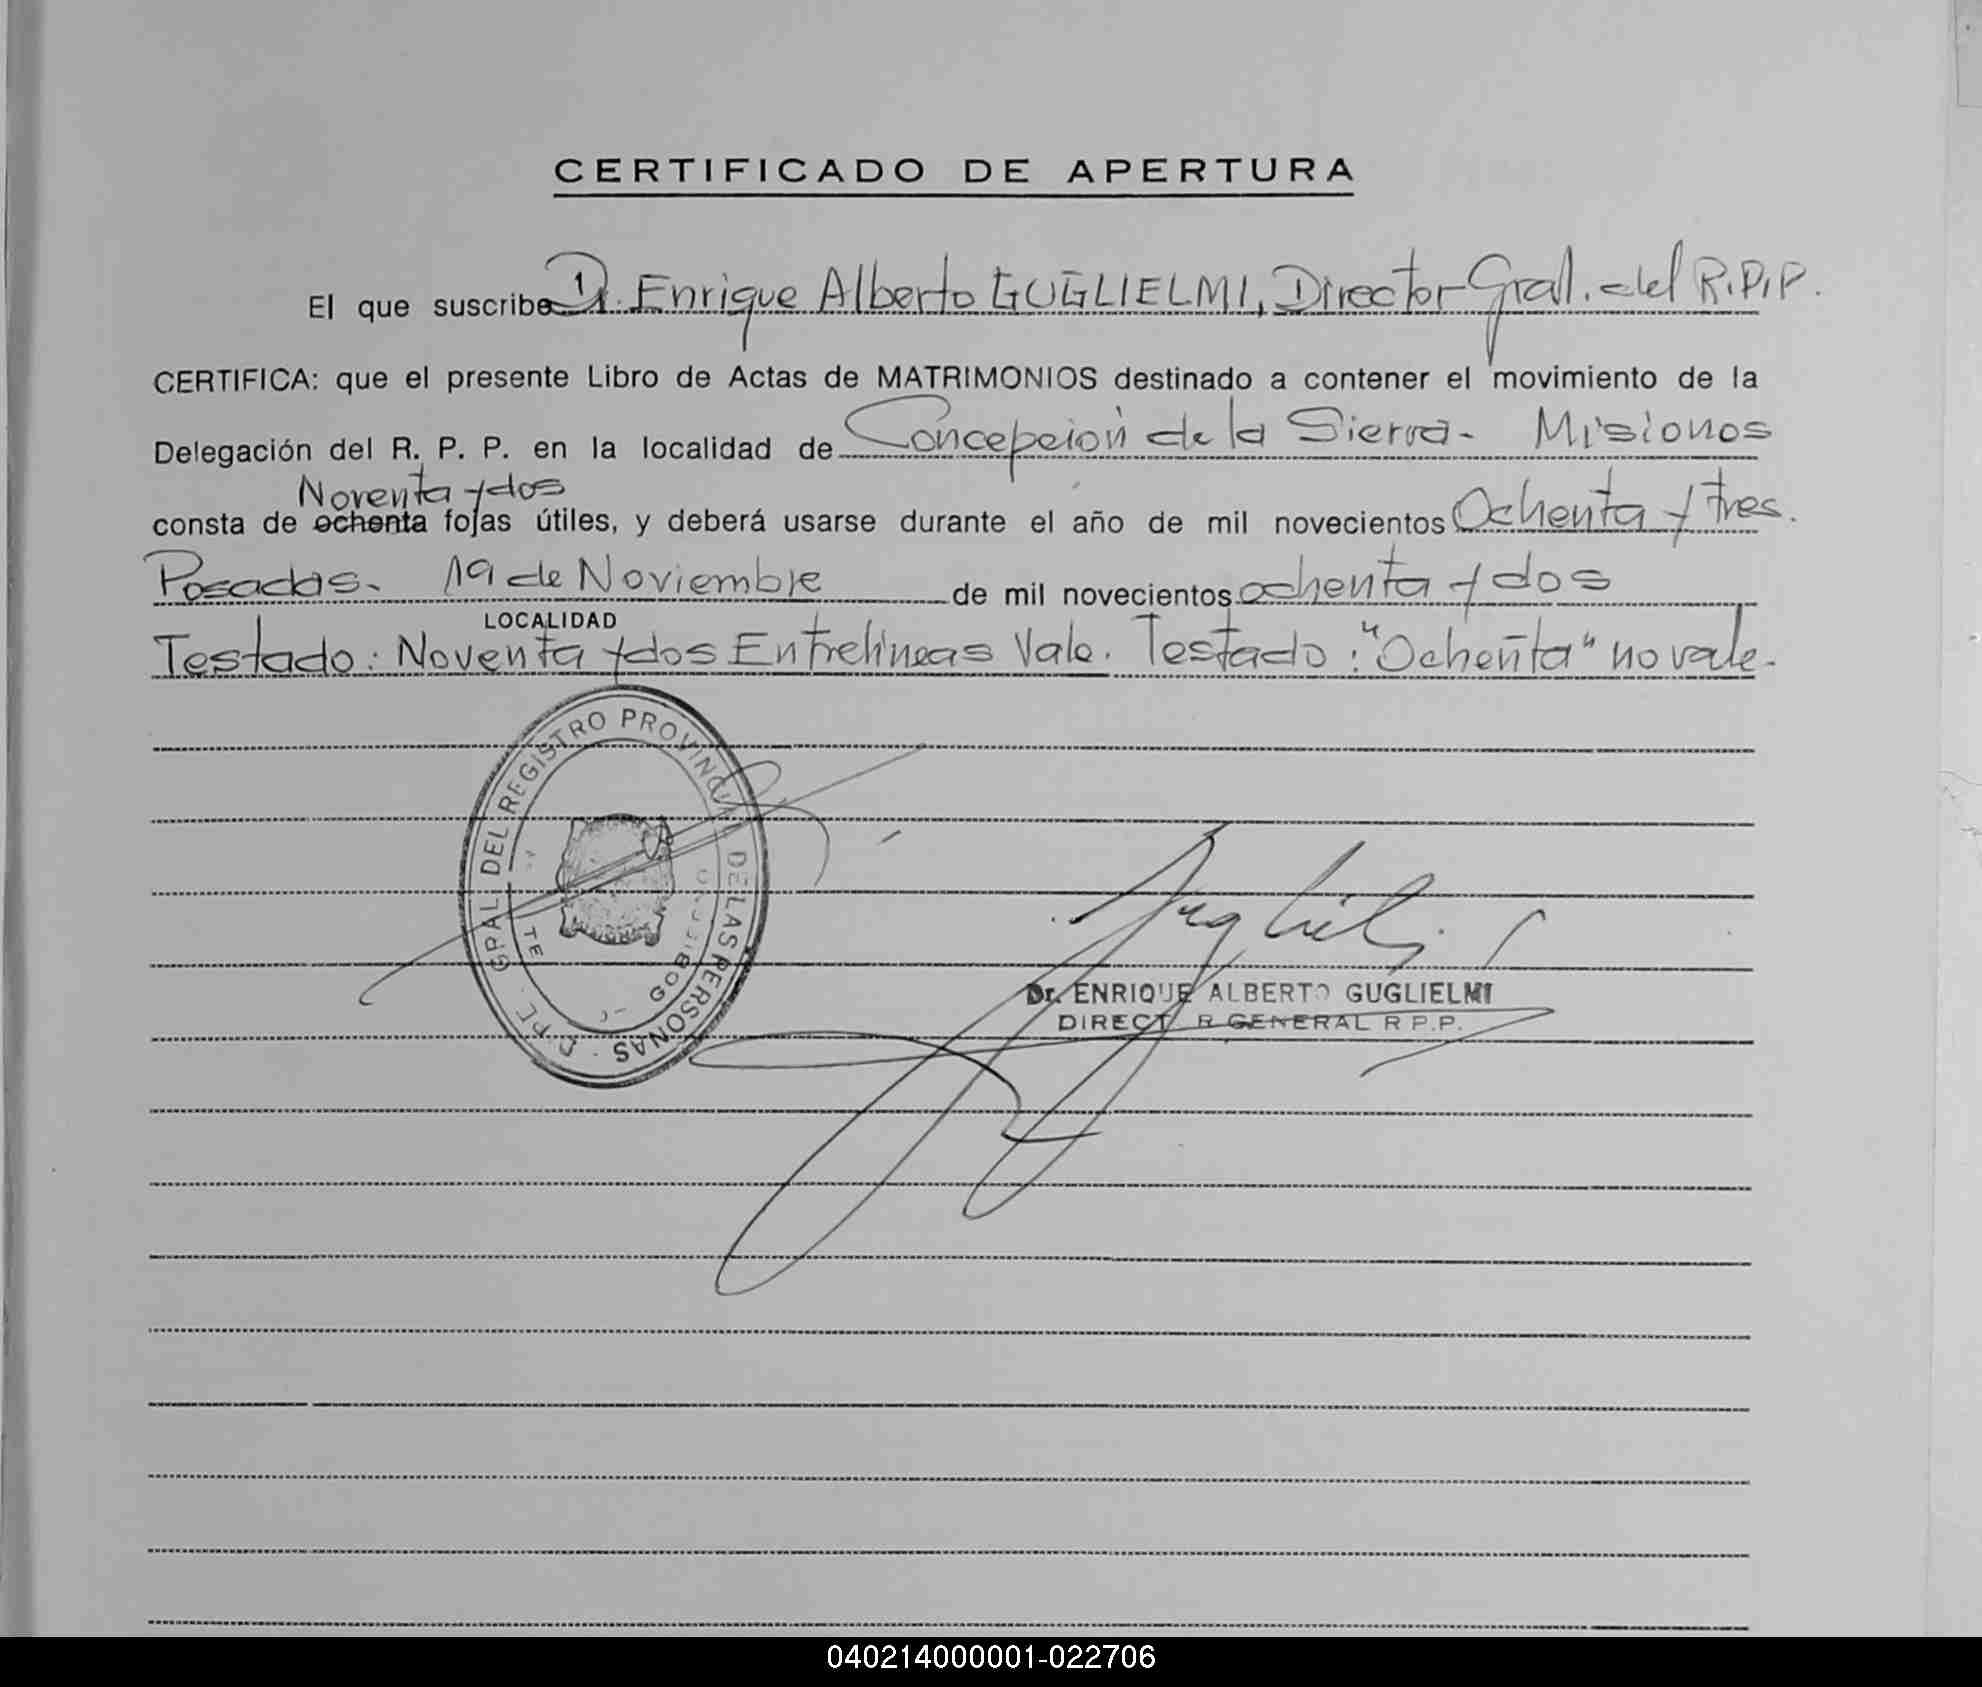 CERTIFICADO DE APERTURA
El que suscribe Dr. Enrique Alberto GUGLIELMI, Director Gral. del R.P.P.
CERTIFICA: que el presente Libro de Actas de MATRIMONIOS destinado a contener el movimiento de la
Delegación del R. P. P. en la localidad de Concepción de la Sierra - Misiones
Noventa y dos
consta de ochenta fojas útiles, y deberá usarse durante el año de mil novecientos Ochenta y tres.
Posadas. 19 de Noviembre de mil novecientos ochenta y dos
LOCALIDAD
Testado: Noventa y dos Entrelineas Vale. Testado: "Ochenta" no vale.
GRAL DEL REGISTRO PROVINCIAL DE LAS PERSONAS
Dr. ENRIQUE ALBERTO GUGLIELMI
DIRECTOR GENERAL R P.P.
040214000001-022706